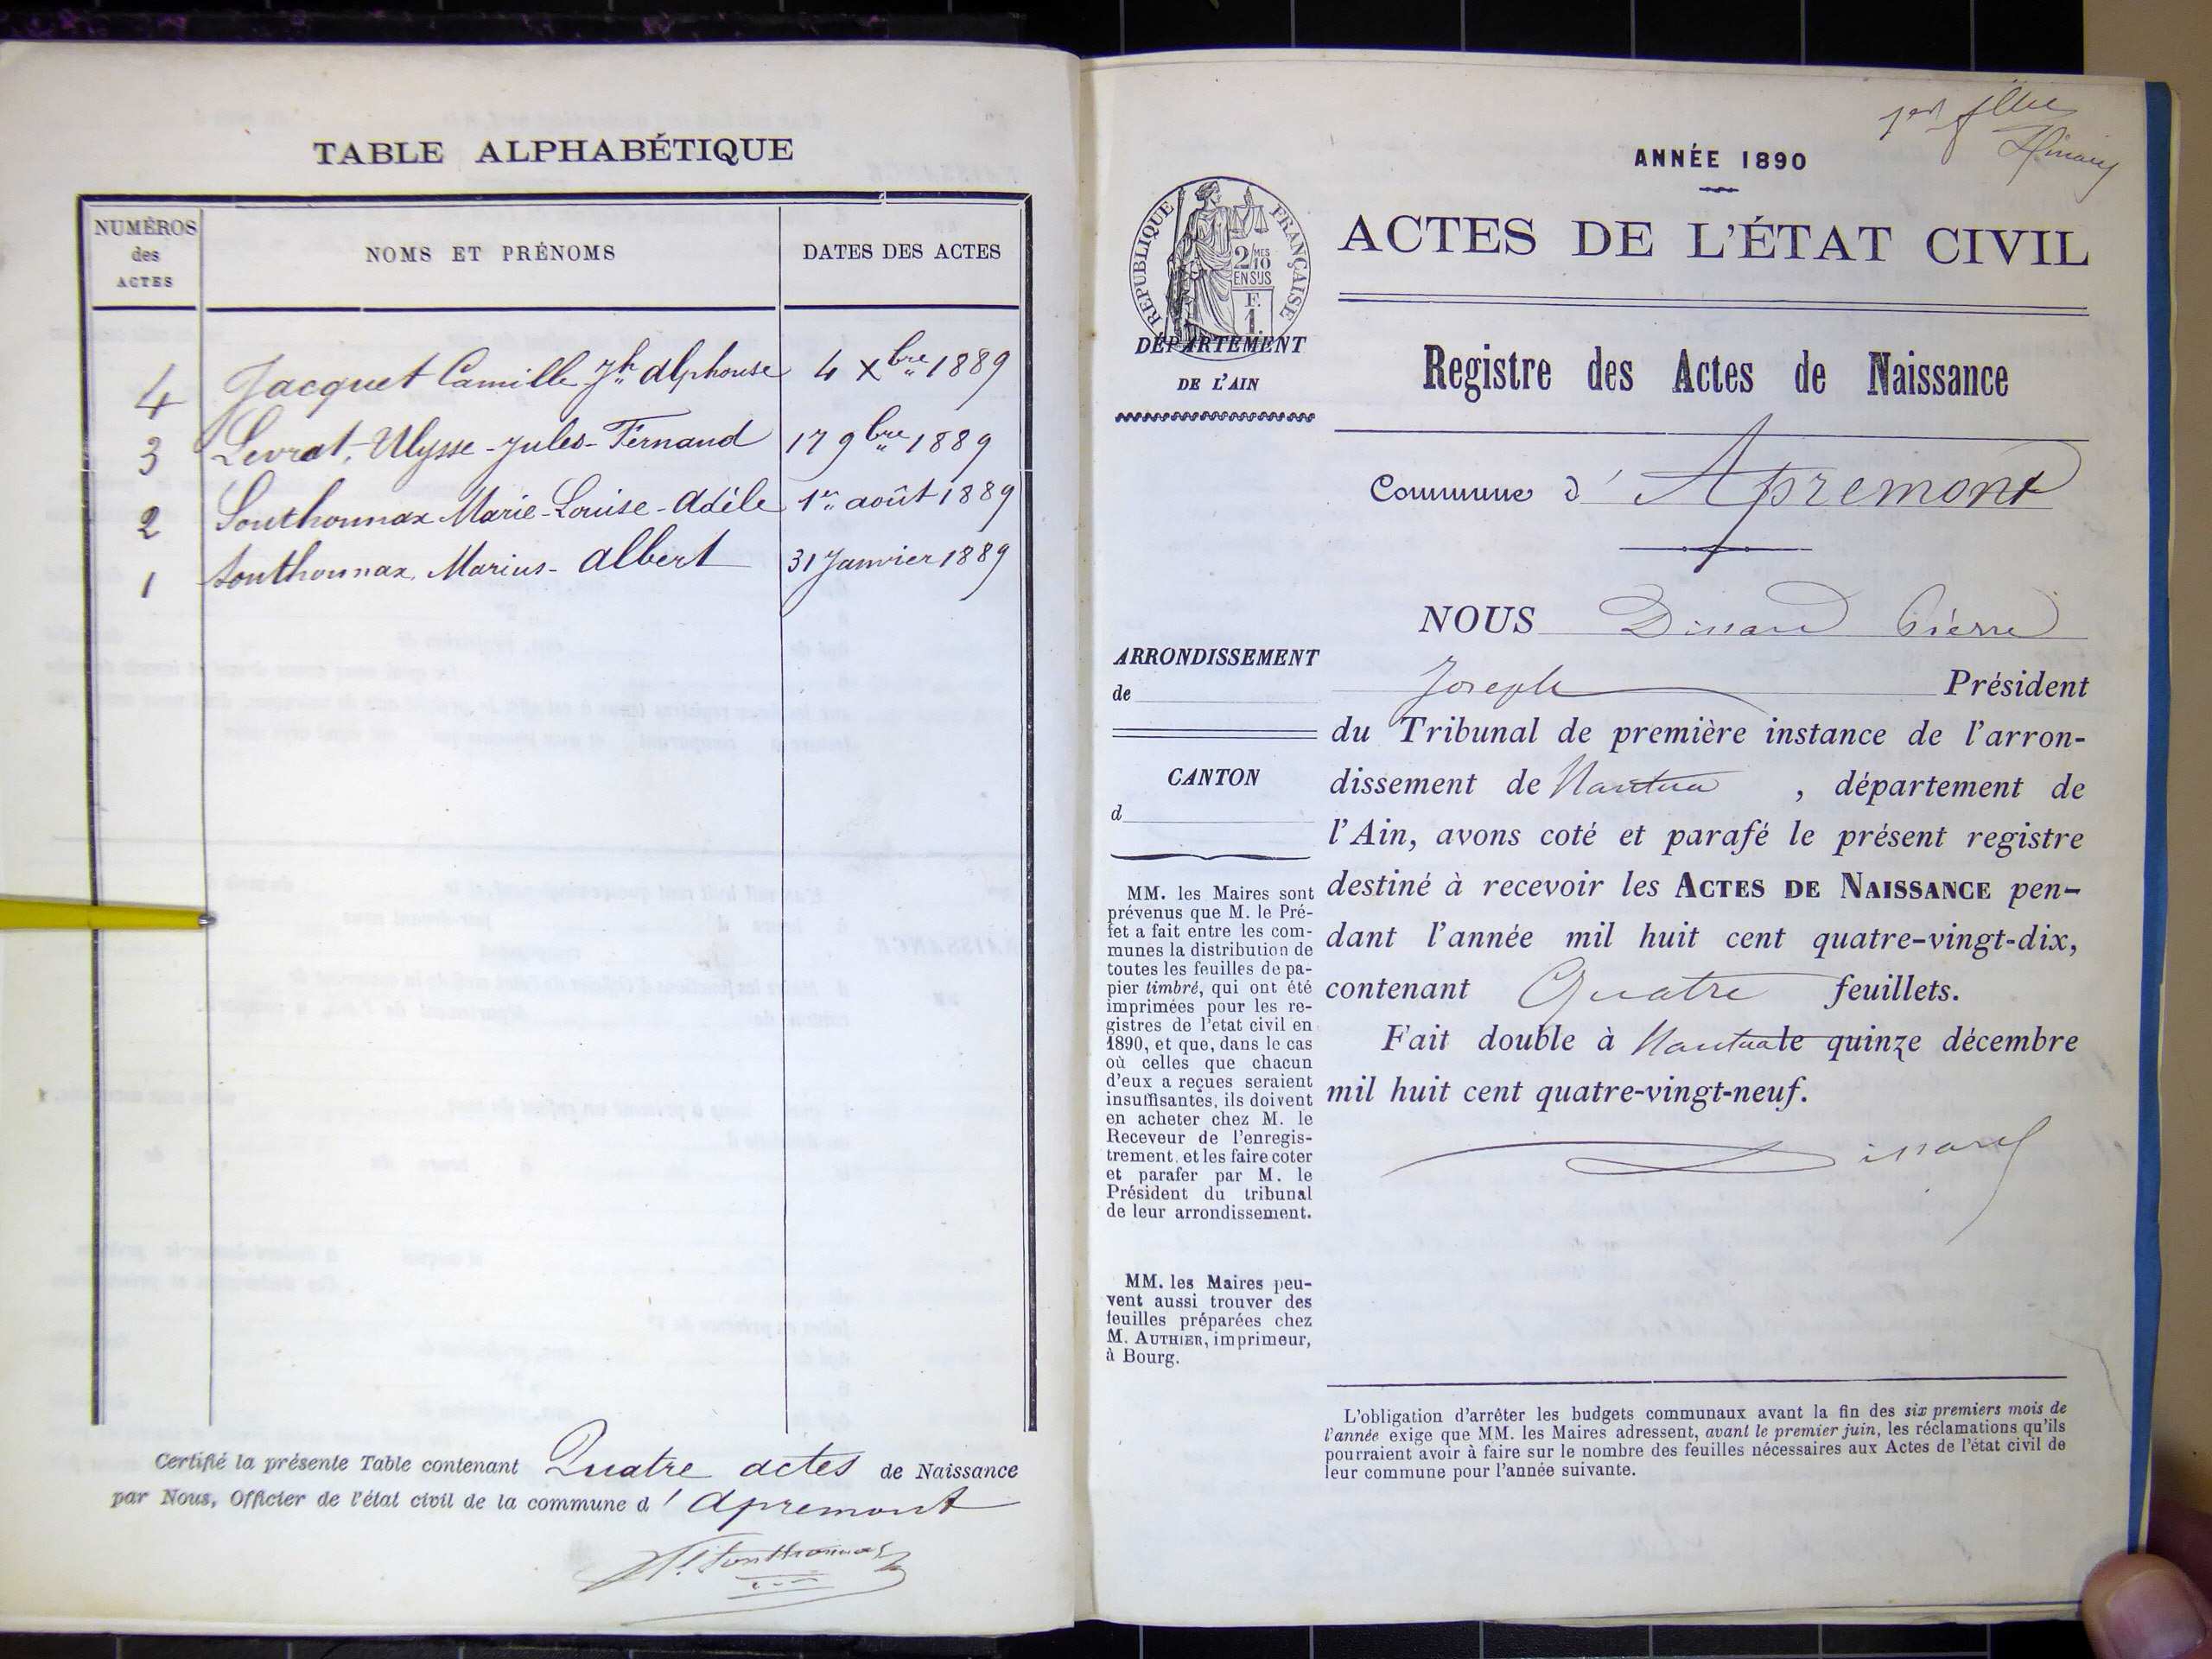 TABLE ALPHABÉTIQUE
NUMÉROS
des
ACTES
NOMS ET PRÉNOMS
DATES DES ACTES
4 Jacquet Camille Jh Alphonse 4 Xbre 1889
3 Levrat, Ulysse-Jules-Fernand 17 9bre 1889
2 Sonthonnax Marie-Louise-Adèle 1er août 1889
1 Sonthonnax, Marius-Albert 31 Janvier 1889
Certifié la présente Table contenant Quatre actes de Naissance
par Nous, Officier de l'état civil de la commune d'Apremont
Sonthonnax
ANNÉE 1890
RÉPUBLIQUE FRANÇAISE
2/10 MES
EN SUS
F.
1.
ACTES DE L'ÉTAT CIVIL
DÉPARTEMENT
DE L'AIN
Registre des Actes de Naissance
Commune d'Apremont
ARRONDISSEMENT
de
CANTON
d
MM. les Maires sont
prévenus que M. le Pré-
fet a fait entre les com-
munes la distribution de
toutes les feuilles de pa-
pier timbré, qui ont été
imprimées pour les re-
gistres de l'etat civil en
1890, et que, dans le cas
où celles que chacun
d'eux a reçues seraient
insuffisantes, ils doivent
en acheter chez M. le
Receveur de l'enregis-
trement, et les faire coter
et parafer par M. le
Président du tribunal
de leur arrondissement.
MM. les Maires peu-
vent aussi trouver des
feuilles préparées chez
M. AUTHIER, imprimeur,
à Bourg.
NOUS Dinard Pierre
Joseph Président
du Tribunal de première instance de l'arron-
dissement de Nantua, département de
l'Ain, avons coté et parafé le présent registre
destiné à recevoir les ACTES DE NAISSANCE pen-
dant l'année mil huit cent quatre-vingt-dix,
contenant Quatre feuillets.
Fait double à Nantua le quinze décembre
mil huit cent quatre-vingt-neuf.
Dinard
L'obligation d'arrêter les budgets communaux avant la fin des six premiers mois de
l'année exige que MM. les Maires adressent, avant le premier juin, les réclamations qu'ils
pourraient avoir à faire sur le nombre des feuilles nécessaires aux Actes de l'état civil de
leur commune pour l'année suivante.